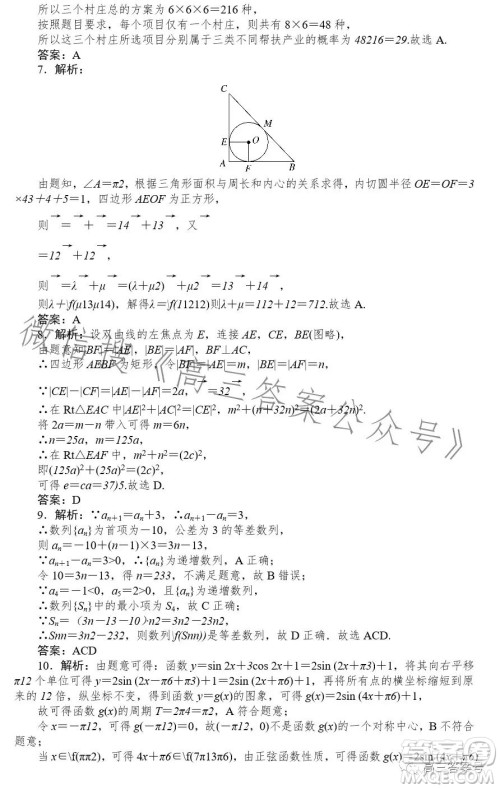 所以三个村庄总的方案为 6×6×6=216 种，
按照题目要求，每个项目仅有一个村庄，则共有 8×6=48 种，
所以这三个村庄所选项目分别属于三类不同帮扶产业的概率为 48216=29.故选 A.
答案：A
7．解析：
C
M
E
O
A
F
B
由题知，∠A=π2，根据三角形面积与周长和内心的关系求得，内切圆半径 OE=OF=3
×43+4+5=1，四边形 AEOF 为正方形，
则 = + =14 +13 ，又
=12 +12 ，
则 =λ +μ =(λ+μ2) +μ2 =13 +14 ，
则λ+\f(μ13μ14)，解得λ=\f(11212)则λ+μ=112+12=712.故选 A.
答案：A
8．解析：设双曲线的左焦点为 E，连接 AE，CE，BE(图略)，
由题意知|BF|=|AE|，|BE|=|AF|，BF⊥AC，
∴四边形 AEBF 为矩形，令|BF|=|AE|=m，|BE|=|AF|=n，
∵|CE|-|CF|=|AE|-|AF|=2a， =32 ，
∴在 Rt△EAC 中|AE|²+|AC|²=|CE|²，m²+(n+32n)²=(2a+32n)².
将 2a=m-n 带入可得 m=6n，
∴n=25a，m=125a，
∴在 Rt△EAF 中，m²+n²=(2c)²，
即(125a)²+(25a)²=(2c)²，
可得 e=ca=37)5.故选 D.
答案：D
9．解析：∵aₙ₊₁=aₙ+3，∴aₙ₊₁-aₙ=3，
∴数列{aₙ}为首项为-10，公差为 3 的等差数列，
则 aₙ=-10+(n-1)×3=3n-13，
∵aₙ₊₁-aₙ=3>0，∴{aₙ}为递增数列，A 正确；
令 10=3n-13，得 n=233，不满足题意，故 B 错误；
∵a₄=-1<0，a₅=2>0，且{aₙ}为递增数列，
∴数列{Sₙ}中的最小项为 S₄，故 C 正确；
∵Sₙ=（3n-13-10>n)2=3n2-23n2，
∴Snn=3n2-232，则数列\f(Snn))是等差数列，故 D 正确．故选 ACD.
答案：ACD
10．解析：由题意可得：函数 y=sin 2x+3cos 2x+1=2sin (2x+π3)+1，将其向右平移
π12 个单位可得 y=2sin (2x-π6+π3)+1=2sin (2x+π6)+1，再将所有点的横坐标缩短到原
来的 12 倍，纵坐标不变，得到函数 y=g(x)的图象，可得 g(x)=2sin (4x+π6)+1，
故可得函数 g(x)的周期 T=2π4=π2，A 符合题意；
令 x=-π12，可得 g(-π12)=0，故(-π12，0)不是函数 g(x)的一个对称中心，B 不符合
题意；
当 x∈\f(ππ2)，可得 4x+π6∈\f(7π13π6)，由正弦函数性质，可得函数 g(x)=2sin (4x+π6)
微信搜《高三答案公众号》